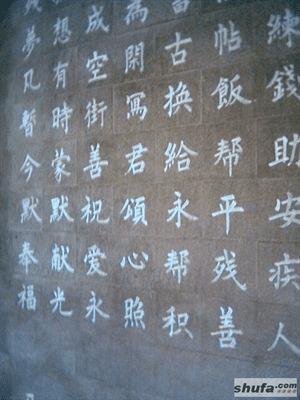 練錢助安疾人
帖飯帮平残善
古換給永帮积
為閑寫君頌心照
成空街善祝爱永
想有時蒙默献光
夢凡暫今默奉福
shufa.com